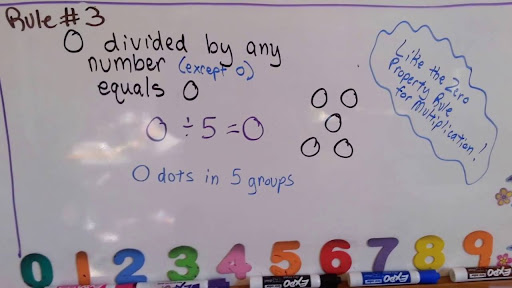 Rule #3
0 divided by any
number (except 0)
equals 0
0 ÷ 5 = 0
0 dots in 5 groups
Like the Zero
Property Rule
for Multiplication!
0 1 2 3 4 5 6 7 8 9
EXPO EXPO EXPO EXPO